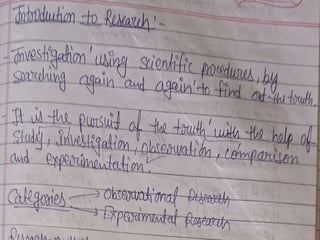 Introduction to Research :-
- Investigation using scientific procedures, by
searching again and again to find out the touth.
- It is the pursuit of the touth with the help of
study, investigation, observation, comparison
and experimentation.
Categories → Observational Research
→ Experimental Research